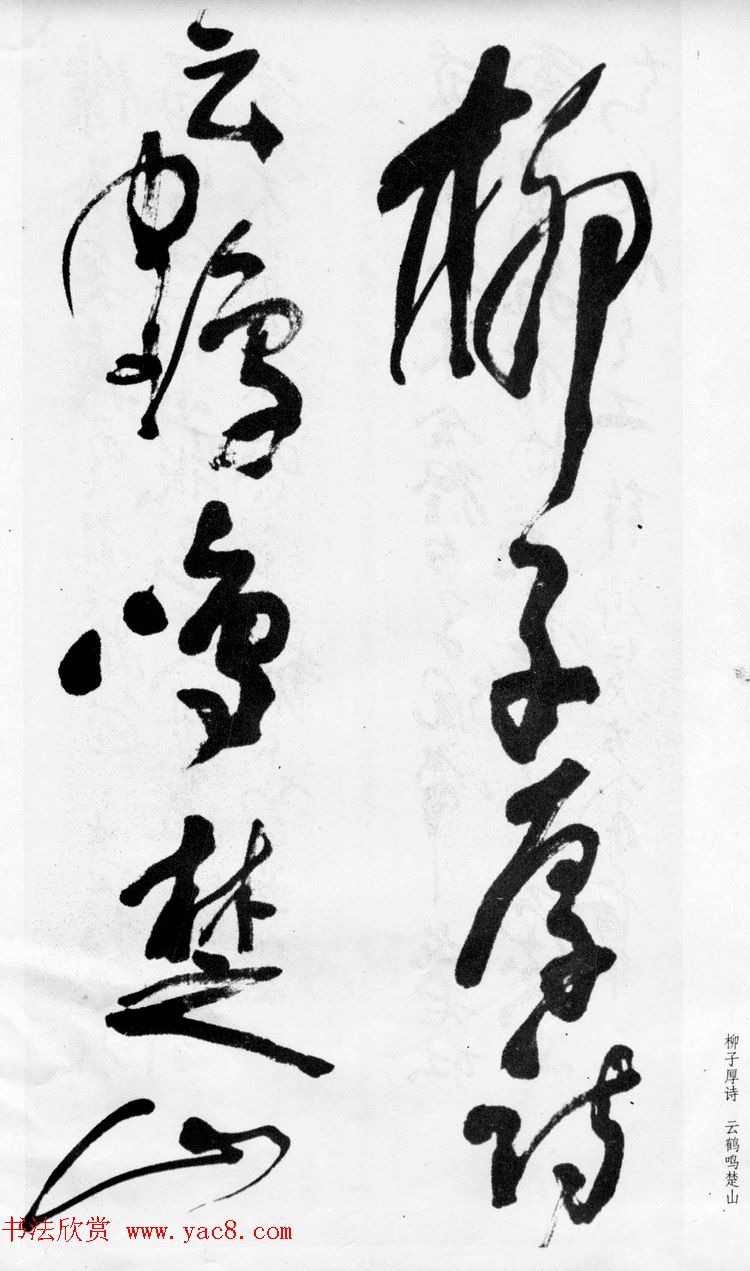 柳子厚诗
云鹤鸣楚山
柳子厚诗　云鹤鸣楚山
书法欣赏 www.yac8.com